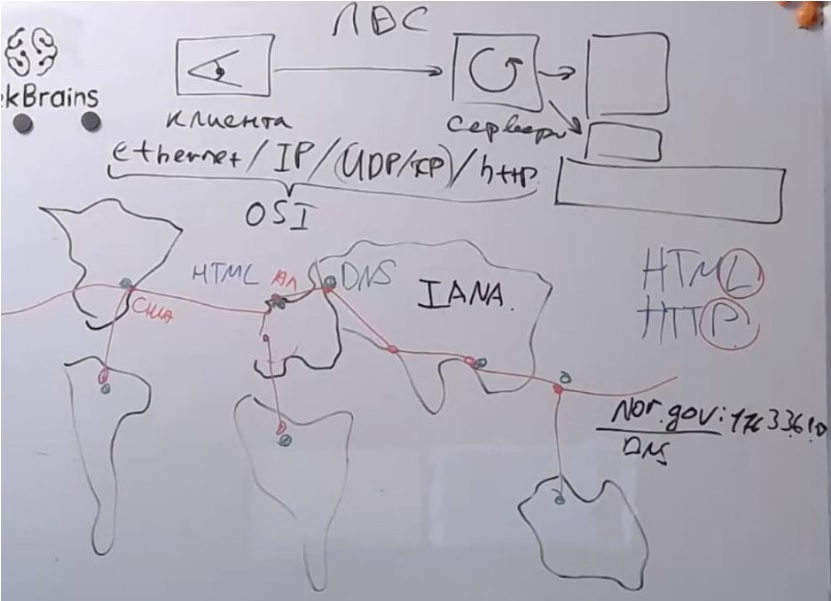 ЛВС
kBrains
клиента
серверы
ethernet/IP/(UDP/TCP)/http
OSI
HTML
DNS
IANA.
HTML
HTTP
США
Nor.gov:
DNS